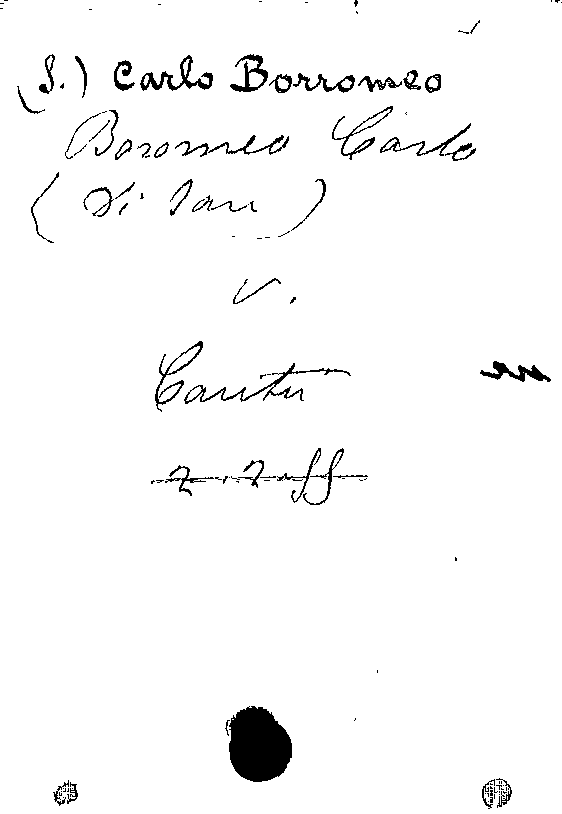 (S.) Carlo Borromeo
Boromeo Carlo
(Di San)
V.
Cantù
2. 2. ff